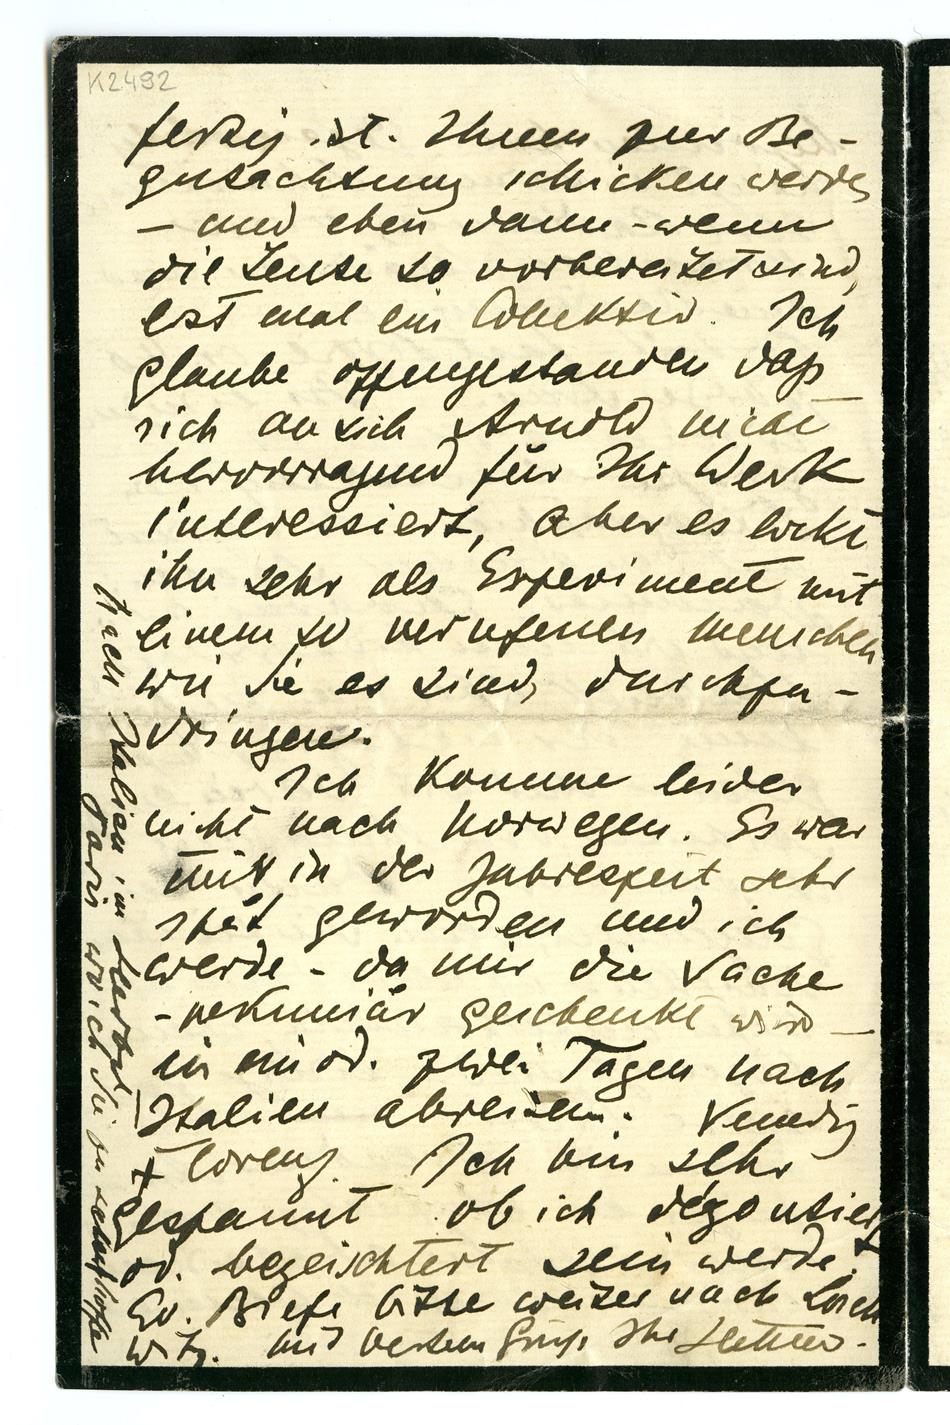 K2492
fertig ist. Ihnen zur Be-
gutachtung schicken werde,
– und eben dann – wenn
die Leute so vorbereitet sind,
erst mal ein Convektiv. Ich
glaube offengestanden dass
sich an sich Arnold nicht
hervorragend für Ihr Werk
interessiert, aber es lockt
ihn sehr als Experiment mit
einem so verrufenen Menschen
wie Sie es sind, durchzu-
dringen.
Ich komme leider
nicht nach Norwegen. Es war
mir in der Jahreszeit sehr
spät geworden und ich
werde – da mir die Sache
– pekuniär geschenkt wird –
in ein od. zwei Tagen nach
Italien abreisen. Venedig
Florenz. Ich bin sehr
gespannt ob ich dégoutiert
od. begeistert sein werde. +
Ev. Briefe bitte weiter nach Losch
witz. Mit bestem Gruss Ihr Hettner.
+ Nach Italien im Herbst
Paris wo ich Sie zu sehen hoffe